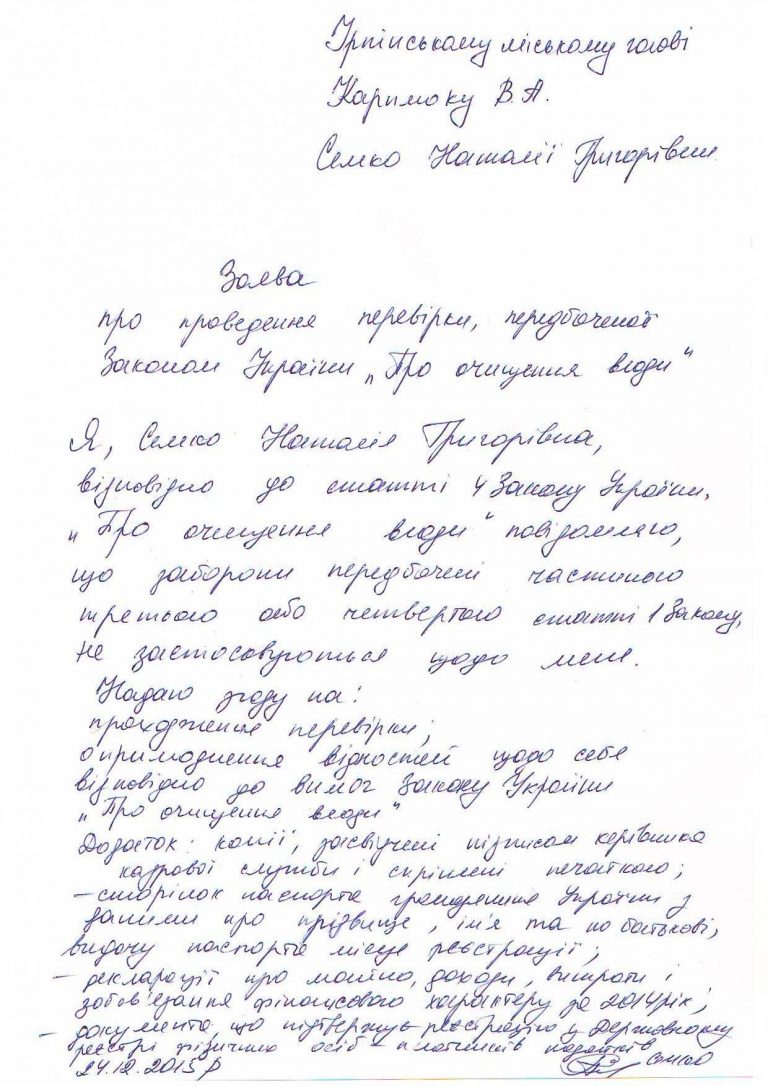 Ірпінському міському голові
Карплюку В.А.
Семко Наталії Григорівни
Заява
про проведення перевірки, передбаченої
Законом України „Про очищення влади"
Я, Семко Наталія Григорівна,
відповідно до статті 4 Закону України
„Про очищення влади" повідомляю,
що заборони передбачені частиною
третьою або четвертою статті 1 Закону,
не застосовуються щодо мене.
Надаю згоду на:
проходження перевірки;
оприлюднення відомостей щодо себе
відповідно до вимог Закону України
„Про очищення влади"
Додаток: копії, засвідчені підписом керівника
кадрової служби і скріплені печаткою;
- сторінок паспорта громадянина України з
даними про прізвище, ім'я та по батькові,
видачу паспорта місце реєстрації;
- декларації про майно, доходи, витрати і
зобов'язання фінансового характеру за 2014 рік;
- документа, що підтверджує реєстрацію у Державному
реєстрі фізичних осіб платників податків
24.12.2015 р Семко